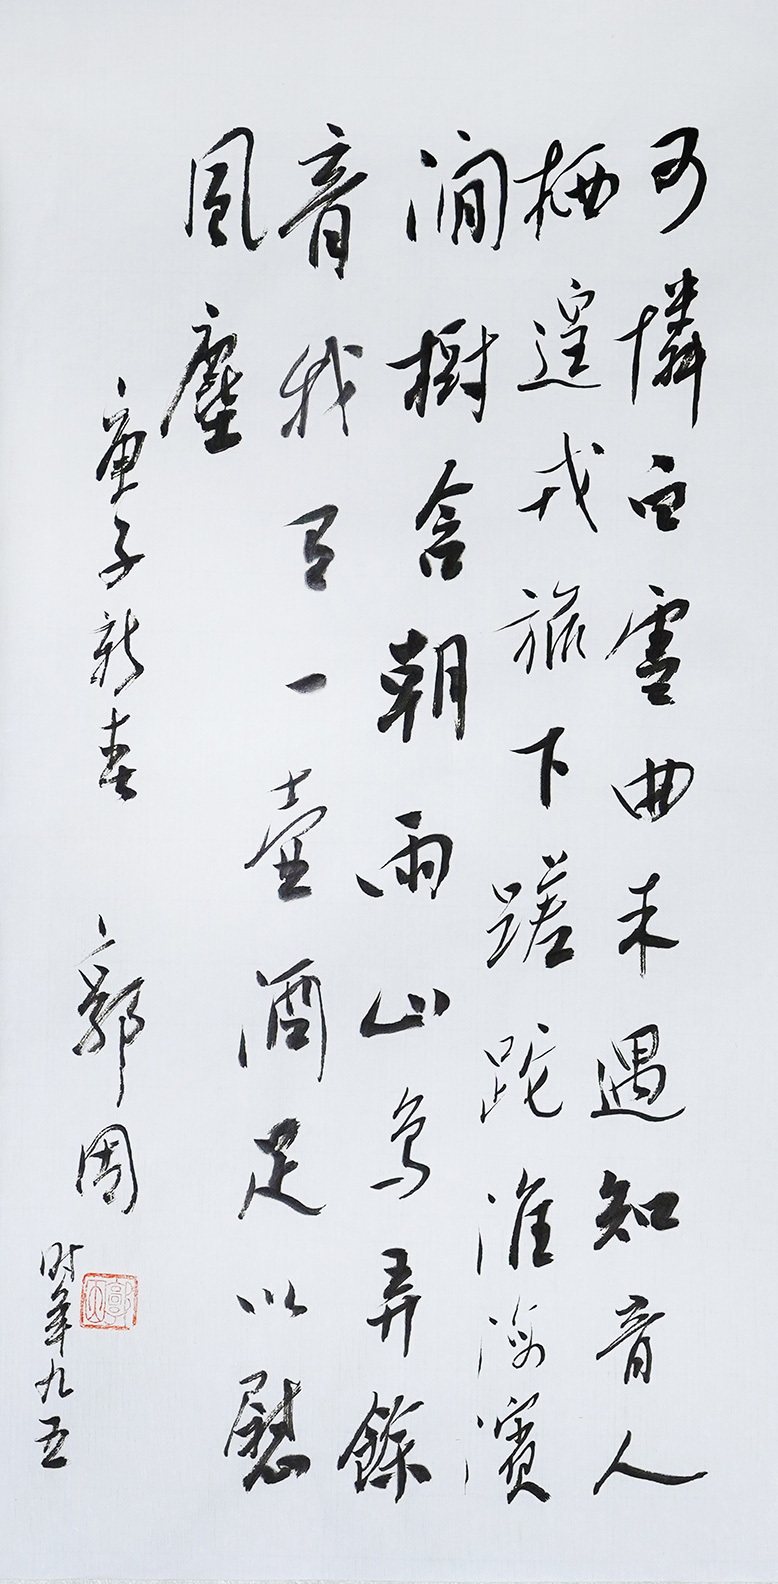 可憐白雪曲未遇知音人
栖遑戎旅下蹉跎淮海濱
澗樹含朝雨山鳥弄餘
音我有一壺酒足以慰
風塵
庚子新春 郭周
时年九五